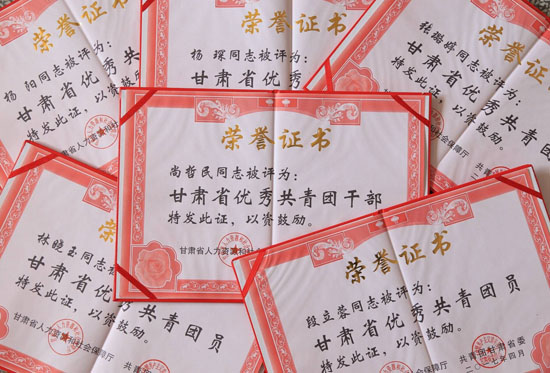 荣誉证书
杨 阳同志被评为:
甘肃省优秀
特发此证,以资鼓
甘肃省人力资源和社
荣誉证书
杨 琛同志被评为:
甘肃省优
荣誉证书
张璐婷同志被评为:
甘肃省优
特发此证,以资鼓励。
社会保障厅 共青
荣誉证书
尚哲民同志被评为:
甘肃省优秀共青团干部
特发此证,以资鼓励。
甘肃省人力资源和社会
林晓玉同志被
甘肃省优秀共青团员
特发此证,以资鼓励。
甘肃省人力资源和社会保障厅 共
荣誉证书
段立蓉同志被评为:
甘肃省优秀共青团员
特发此证,以资鼓励。
共青团甘肃省委
年四月